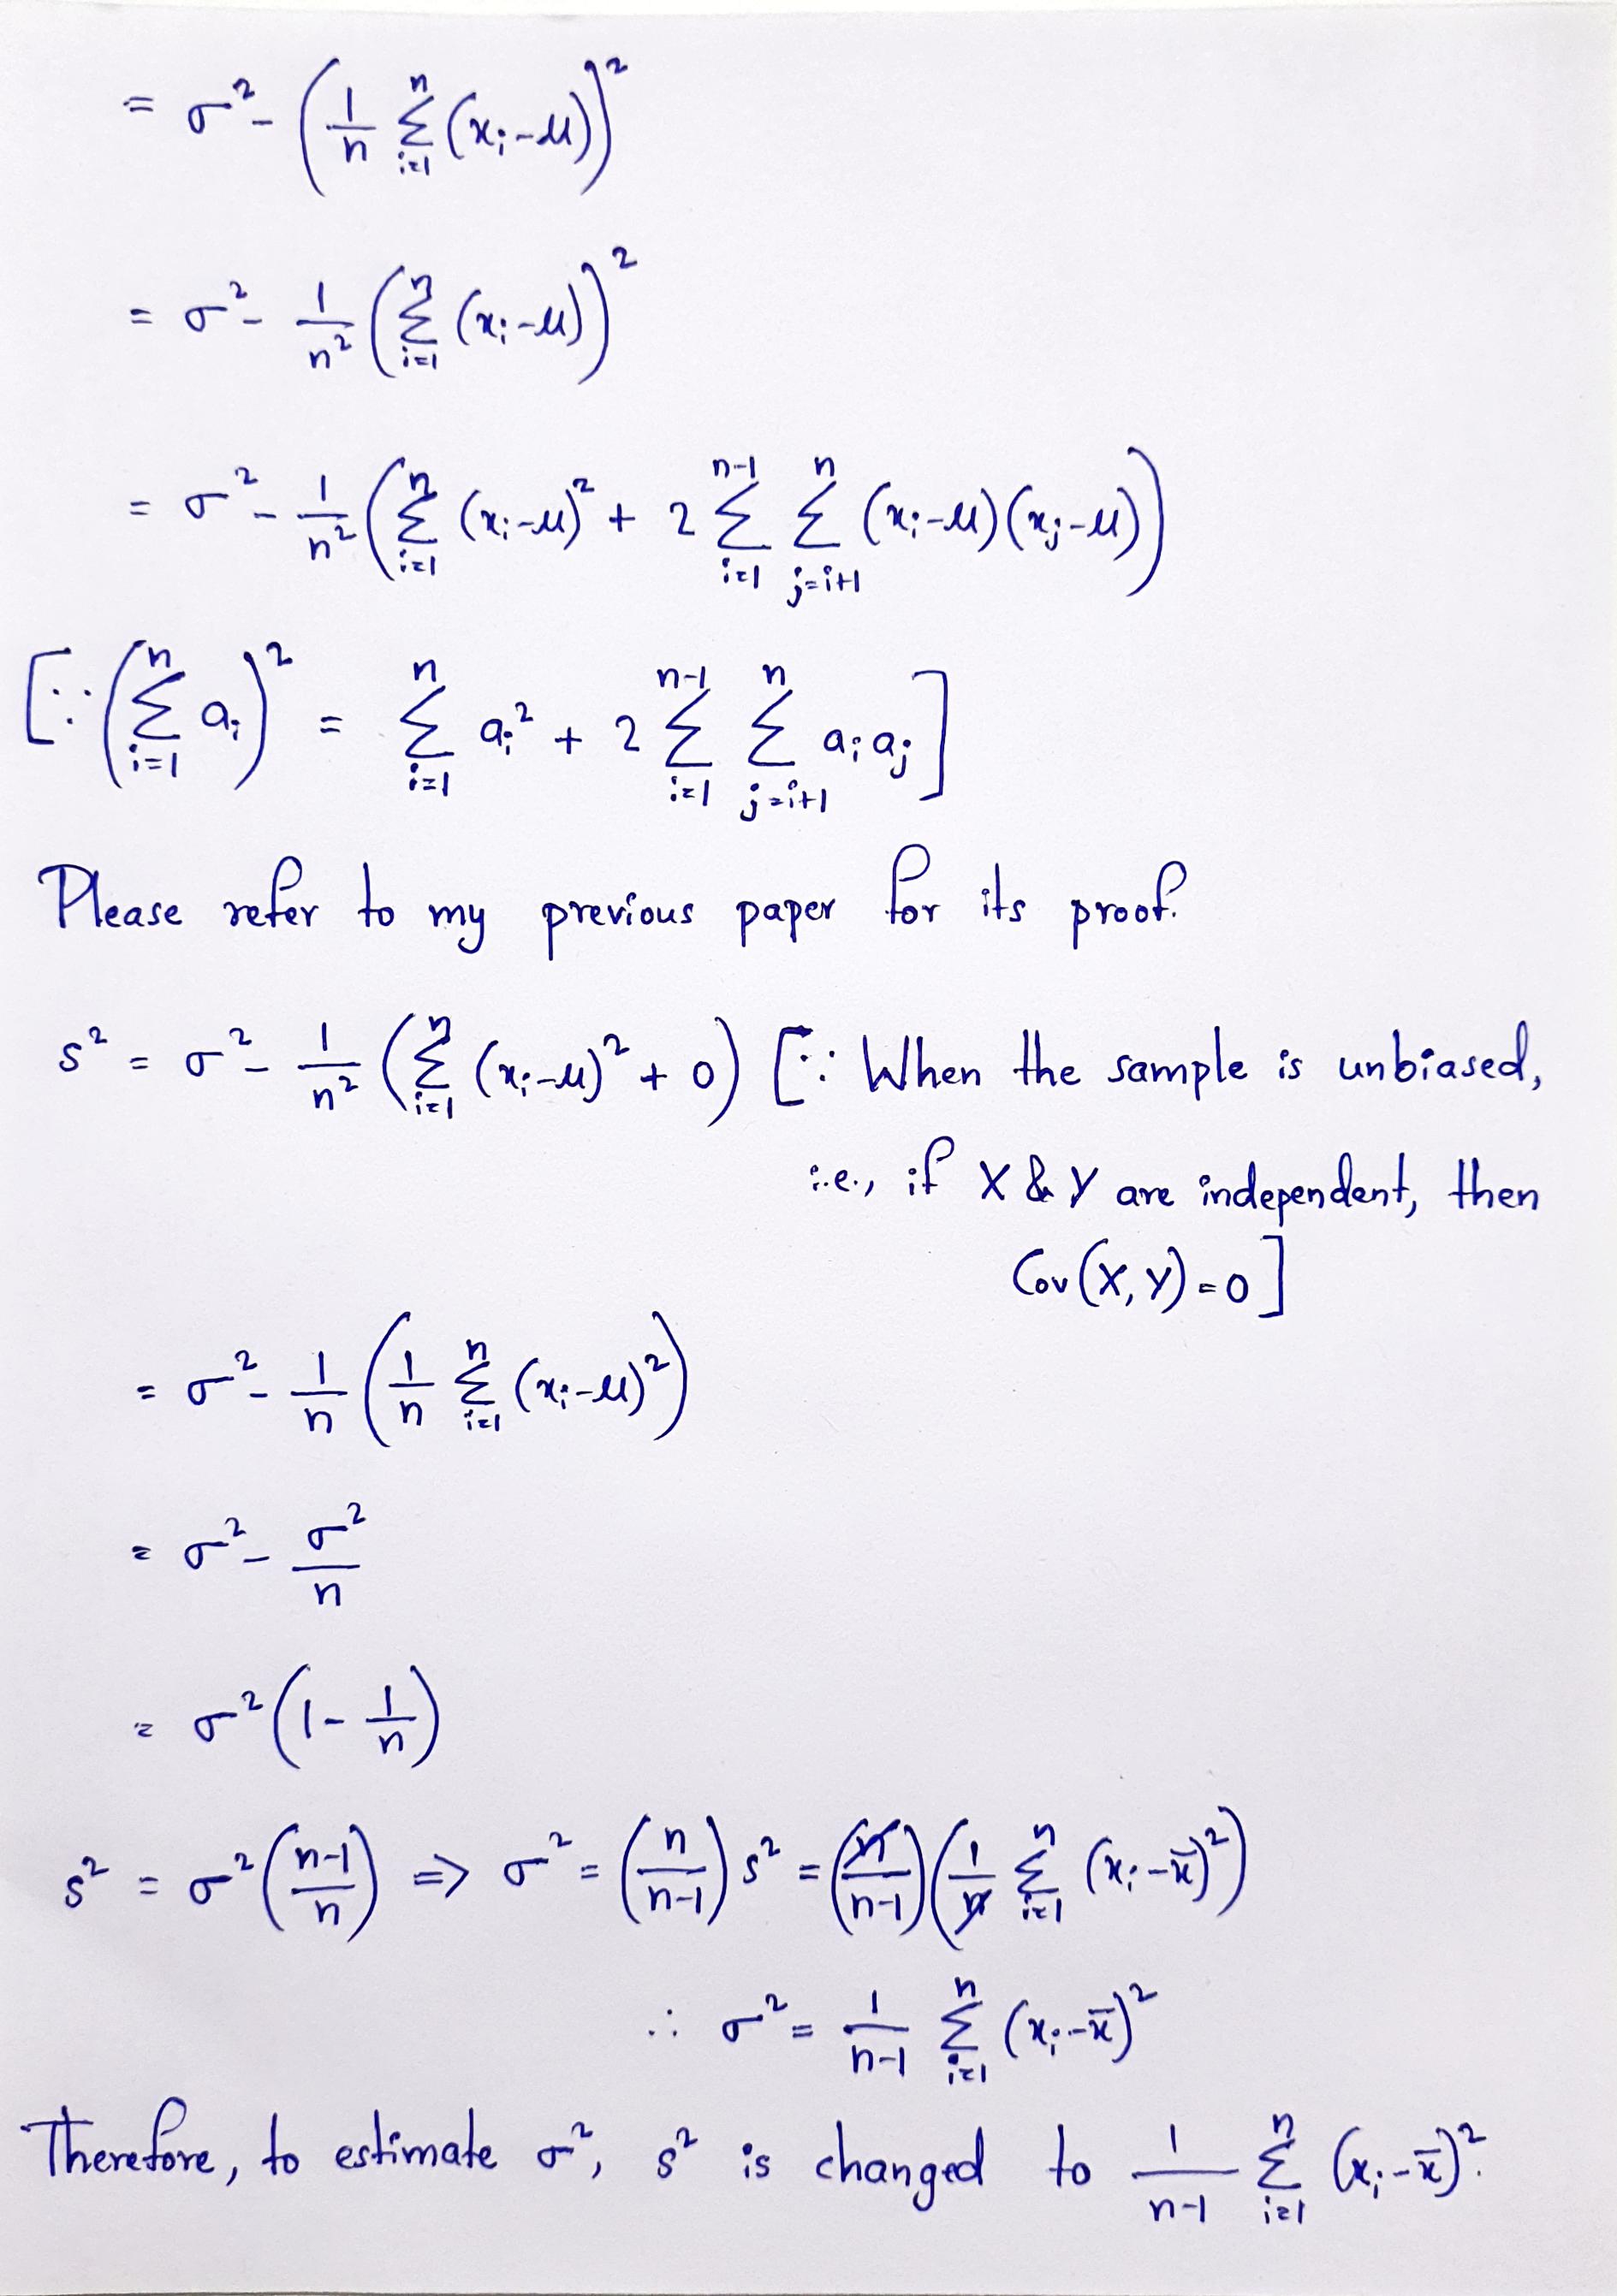 = σ² - (1/n Σ_{i=1}^{n} (x_i - μ))²
= σ² - 1/n² (Σ_{i=1}^{n} (x_i - μ))²
= σ² - 1/n² (Σ_{i=1}^{n} (x_i - μ)² + 2 Σ_{i=1}^{n-1} Σ_{j=i+1}^{n} (x_i - μ)(x_j - μ))
[∵ (Σ_{i=1}^{n} a_i)² = Σ_{i=1}^{n} a_i² + 2 Σ_{i=1}^{n-1} Σ_{j=i+1}^{n} a_i a_j]
Please refer to my previous paper for its proof.
s² = σ² - 1/n² (Σ_{i=1}^{n} (x_i - μ)² + 0) [∵ When the sample is unbiased,
i.e., if X & Y are independent, then
Cov(X, Y) = 0]
= σ² - 1/n (1/n Σ_{i=1}^{n} (x_i - μ)²)
= σ² - σ²/n
= σ² (1 - 1/n)
s² = σ² ((n-1)/n) => σ² = (n/(n-1)) s² = (n/(n-1)) (1/n Σ_{i=1}^{n} (x_i - x̄)²)
∴ σ² = 1/(n-1) Σ_{i=1}^{n} (x_i - x̄)²
Therefore, to estimate σ², s² is changed to 1/(n-1) Σ_{i=1}^{n} (x_i - x̄)².